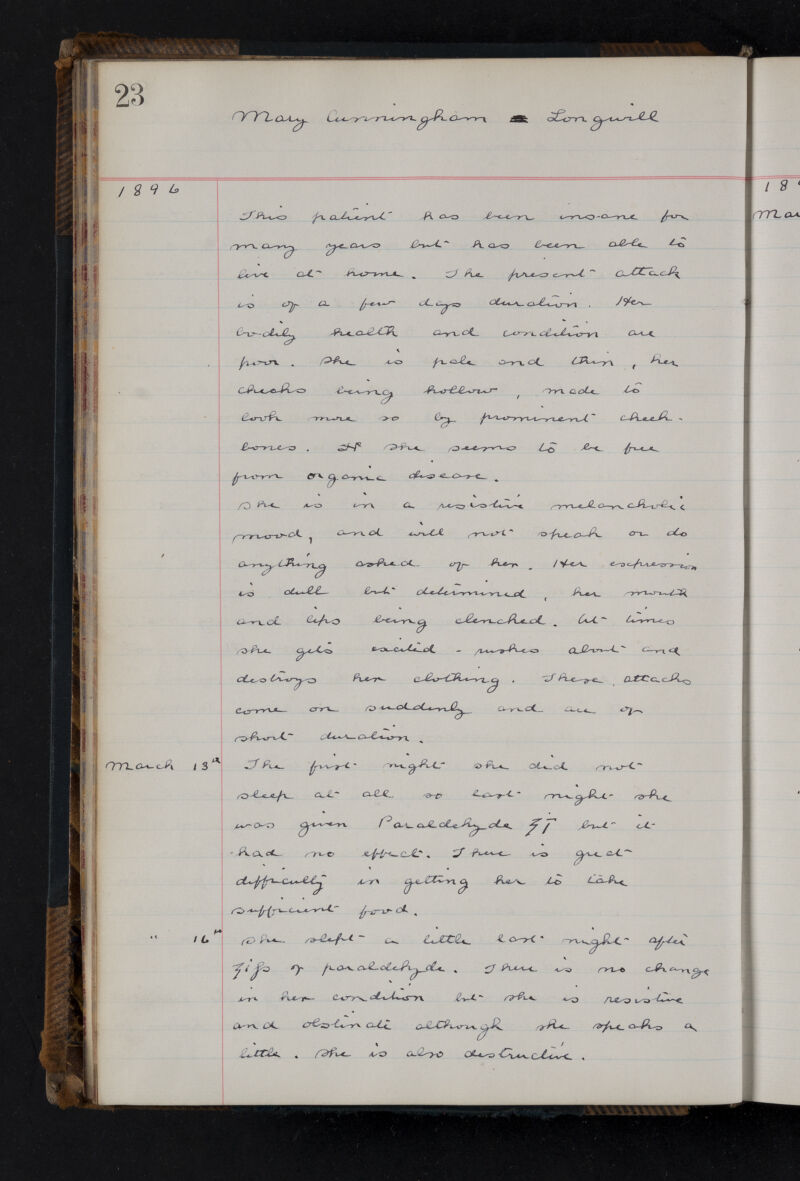 23
Mary Cunningham or Longwill
1896
This patient has been insane for
many years but has been able to
live at home. The present attack
is of a few days duration. Her
bodily health and condition are
poor. She is pale and thin, her
cheeks being hollow, made to
look more so by prominent cheek-
bones. She seems to be free
from organic disease.
She is in a resistive melancholic
mood, and will not speak or do
anything asked of her. Her expression
is dull but determined, her mouth
and lips being clenched. At times
she gets excited - rushes about and
destroys her clothing. These attacks
come on suddenly and are of
short duration.
March 13th The first night she did not
sleep at all so last night she
was given Paraldehyde ʒī but it
had no effect. There is great
difficulty in getting her to take
sufficient food.
" 16th She slept a little last night after
ʒifs of paraldehyde. There is no change
in her condition but she is resistive
and obstinate although she speaks a
little. She is also destructive.
189
Mar